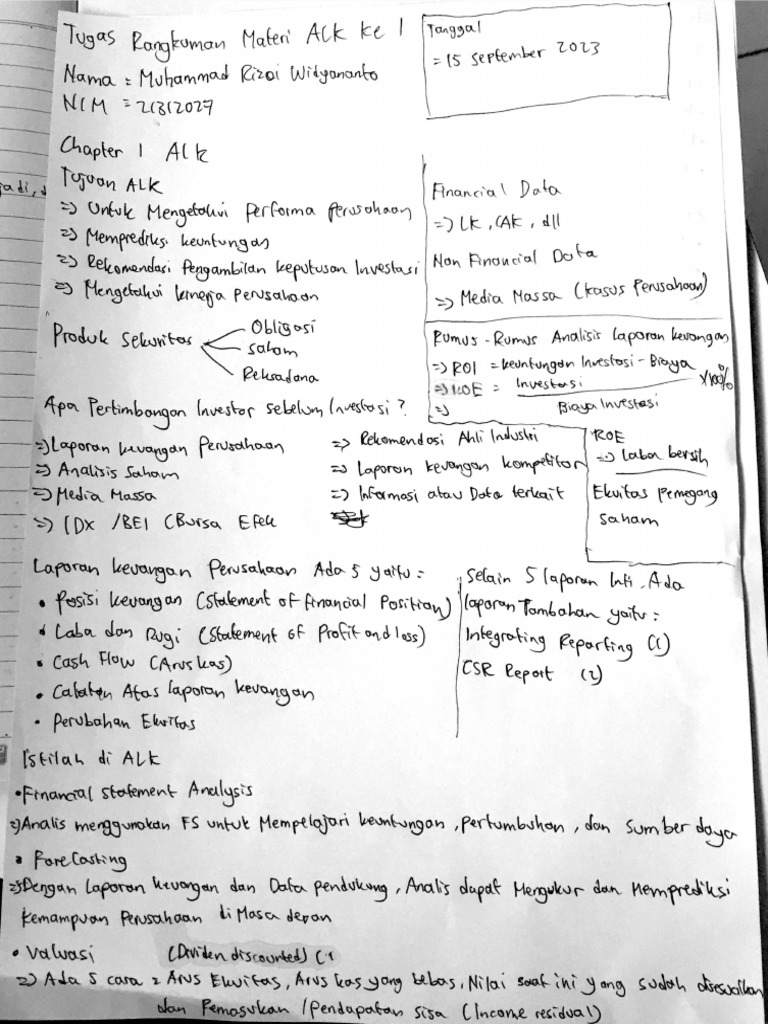 Tugas Rangkuman Materi ALK ke 1
Nama = Muhammad Rizqi Widyananto
NIM = 21312027
Tanggal
= 15 September 2023
Chapter 1 ALK
Tujuan ALK
=> Untuk Mengetahui Performa Perusahaan
=> Memprediksi keuntungan
=> Rekomendasi Pengambilan keputusan Investasi
=> Mengetahui kinerja Perusahaan
Financial Data
=> LK, CAK, dll
Non Financial Data
=> Media Massa (Kasus Perusahaan)
Produk Sekuritas
Obligasi
Saham
Reksadana
Rumus-Rumus Analisis Laporan keuangan
=> ROI = keuntungan Investasi - Biaya
=> ROE = Investasi
x100%
=> Biaya Investasi
Apa Pertimbangan Investor sebelum Investasi?
=> Laporan keuangan Perusahaan
=> Analisis Saham
=> Media Massa
=> IDX /BEI (Bursa Efek
=> Rekomendasi Ahli Industri
=> Laporan keuangan kompetitor
=> Informasi atau Data terkait
ROE
=> Laba bersih
Ekuitas Pemegang
Saham
Laporan keuangan Perusahaan Ada 5 yaitu =
• Posisi keuangan (Statement of Financial Position)
• Laba dan Rugi (Statement of Profit and loss)
• Cash Flow (Arus kas)
• Catatan Atas laporan keuangan
• Perubahan Ekuitas
Selain 5 laporan Inti, Ada
laporan Tambahan yaitu =
Integrating Reporting (1)
CSR Report (2)
Istilah di ALK
• Financial statement Analysis
=> Analis menggunakan FS untuk Mempelajari keuntungan, pertumbuhan, dan Sumber daya
• Forecasting
=> Dengan Laporan keuangan dan Data pendukung, Analis dapat Mengukur dan Memprediksi
kemampuan Perusahaan di Masa depan
• Valuasi (Dividen discounted) (1
=> Ada 5 cara = Arus Ekuitas, Arus kas yang bebas, Nilai saat ini yang sudah disesuaikan
dan Pemasukan /Pendapatan sisa (Income residual)